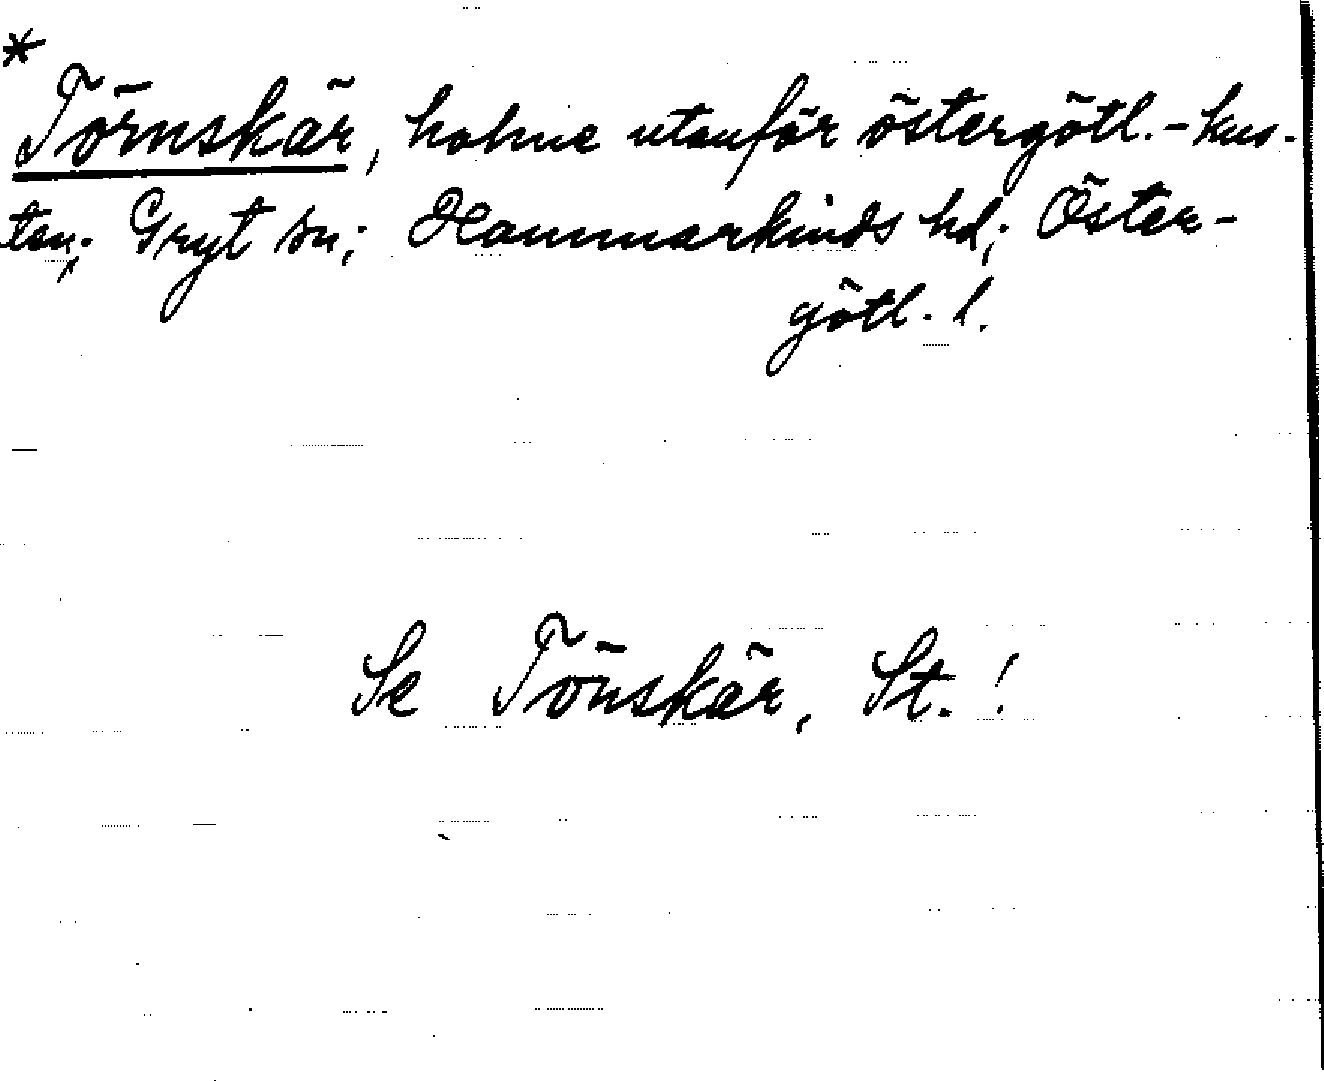 *
Törnskär, holme utanför östergötl.-kus-
ten; Gryt sn; Hammarkinds hd; Öster-
götl. l.
Se Tönskär, St.!